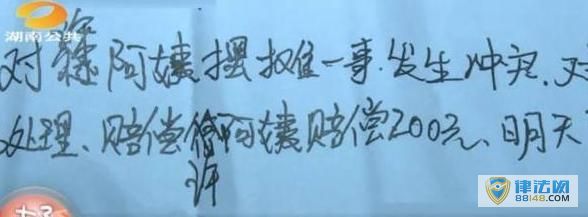 湖南公共
对阿姨摆摊一事.发生冲突.对
处理、赔偿阿姨赔偿200元、明天
许
律法网
88148.com